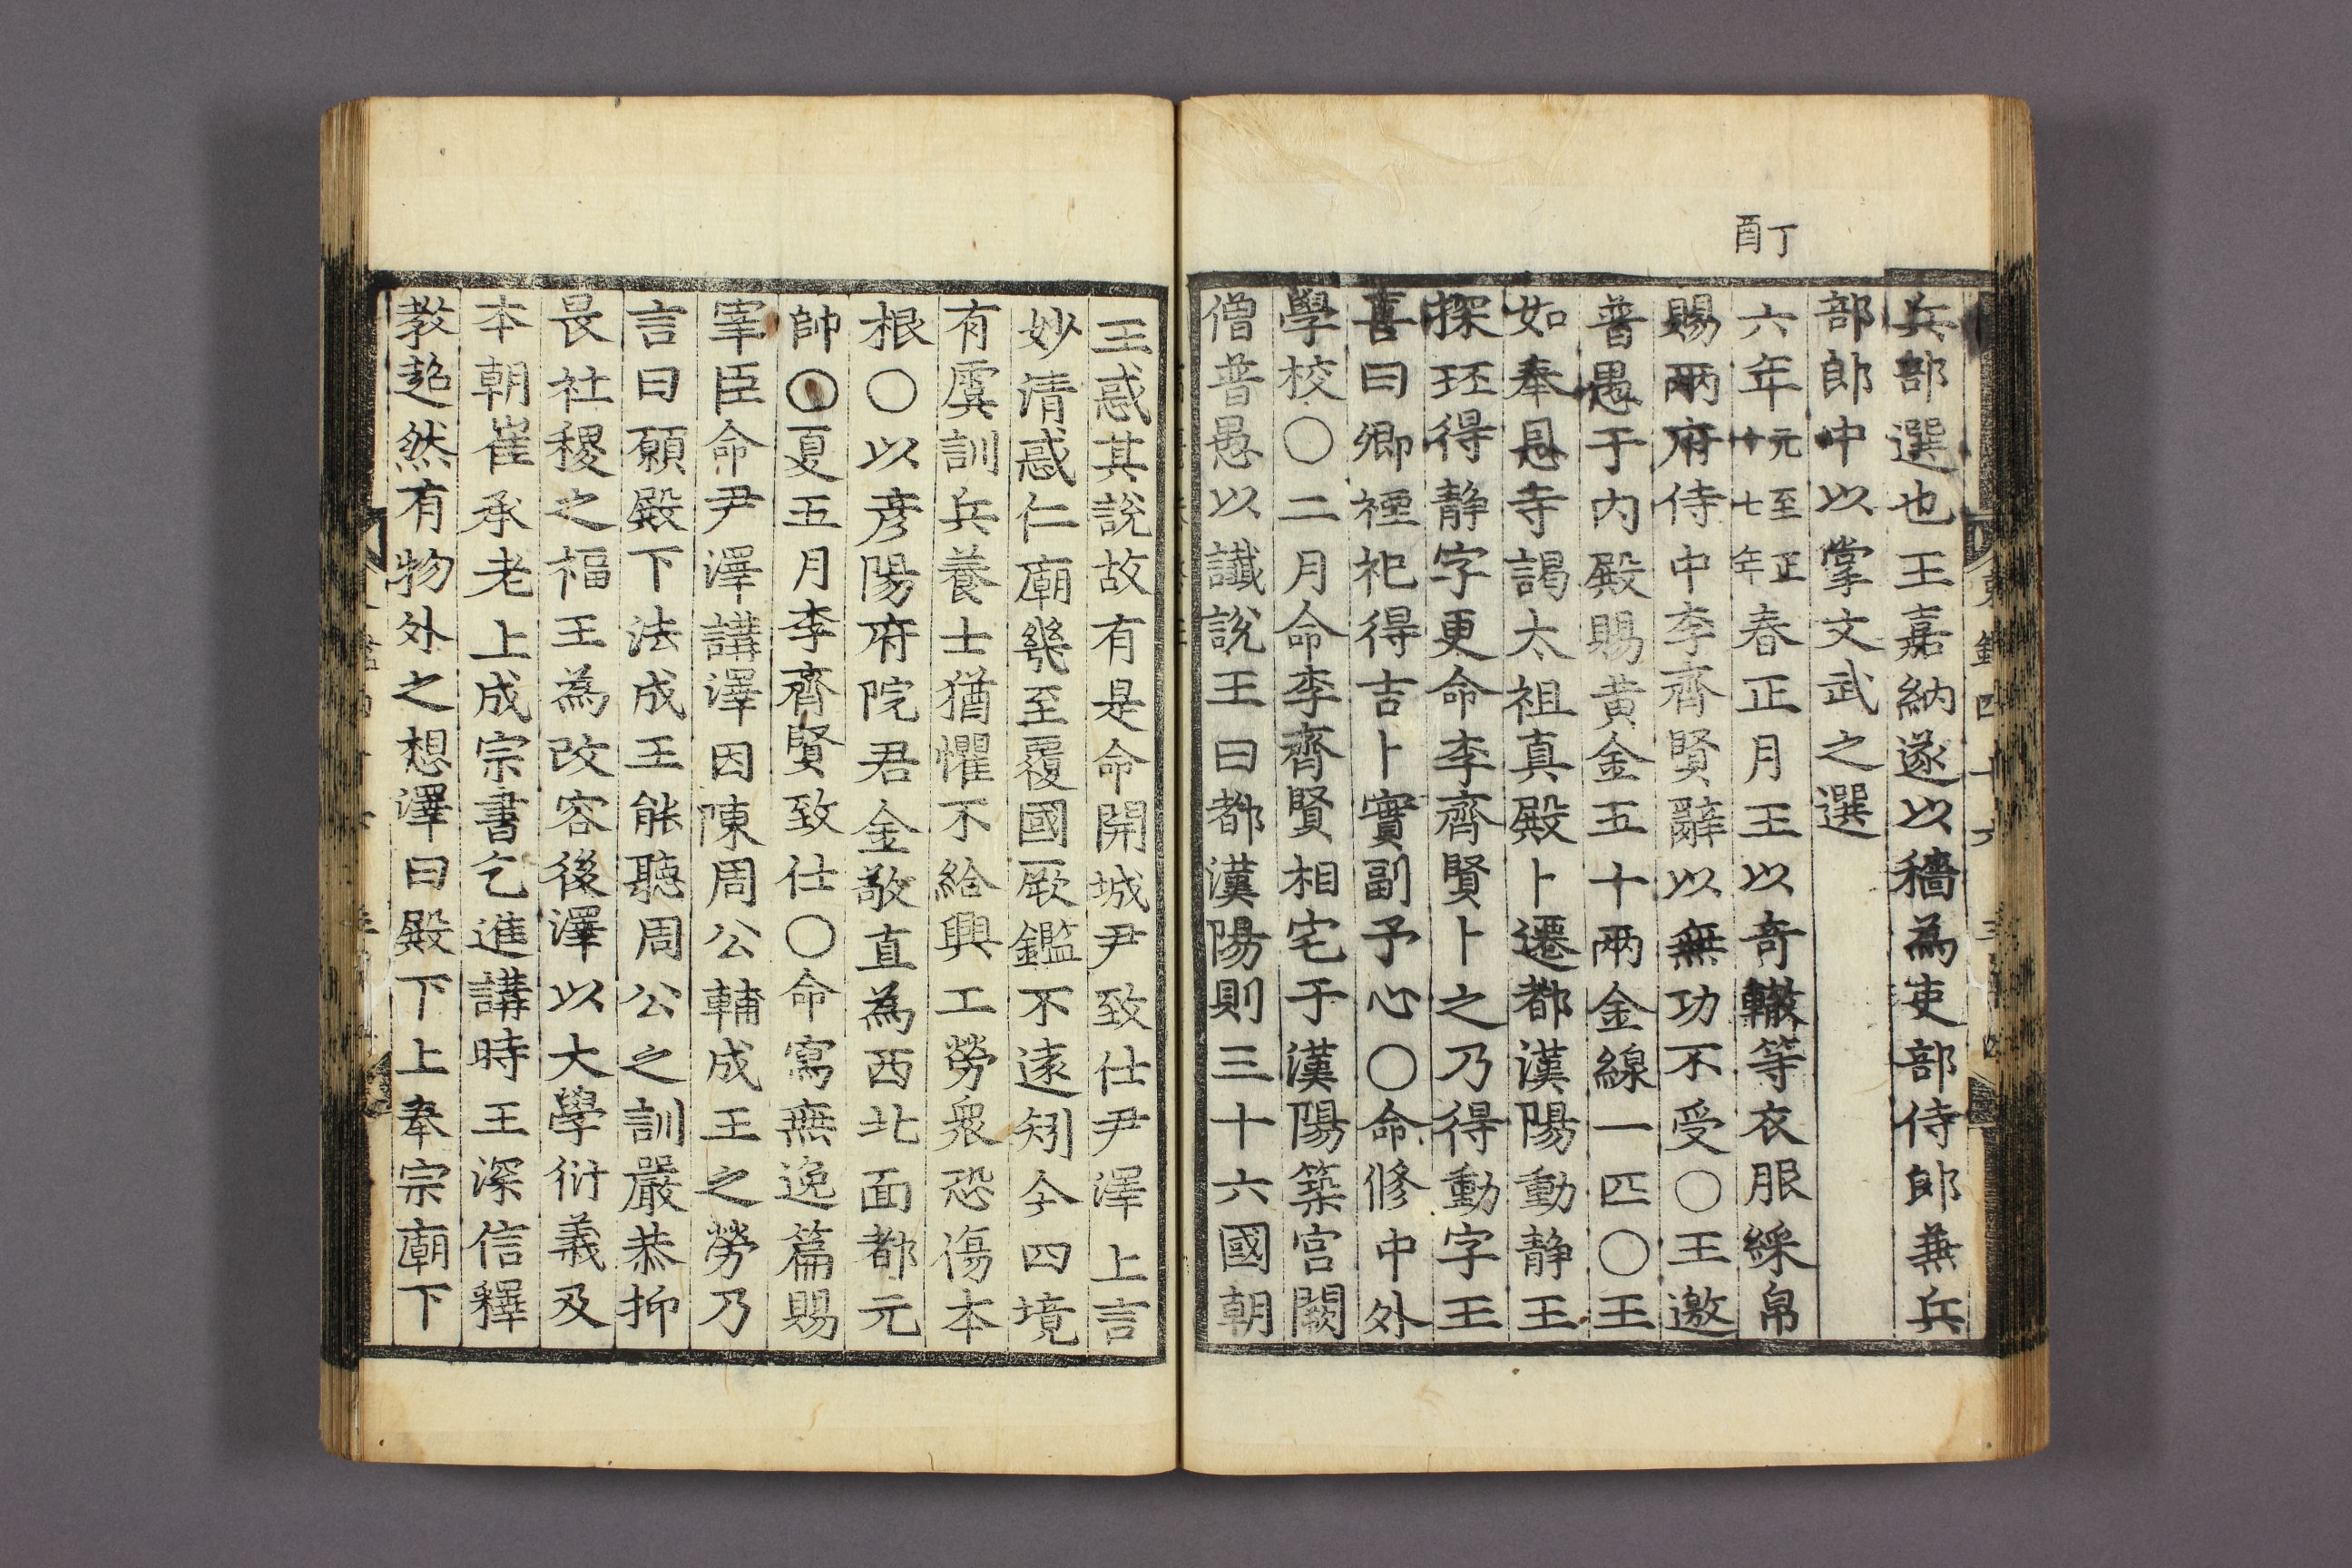 丁酉
兵部選也王嘉納遂以穡為吏部侍郎兼兵
部郎中以掌文武之選
六年元至正十七年春正月王以奇轍等衣服綵帛
賜兩府侍中李齊賢辭以無功不受○王邀
普愚于內殿賜黃金五十兩金線一匹○王
如奉恩寺謁太祖真殿卜遷都漢陽動静王
探珓得静字更命李齊賢卜之乃得動字王
喜曰卿禋祀得吉卜實副予心○命修中外
學校○二月命李齊賢相宅于漢陽築宮闕
僧普愚以讖說王曰都漢陽則三十六國朝
王惑其說故有是命開城尹致仕尹澤上言
妙清惑仁廟幾至覆國厥鑑不遠矧今四境
有虞訓兵養士猶懼不給興工勞衆恐傷本
根○以彦陽府院君金敬直為西北面都元
帥○夏五月李齊賢致仕○命寫無逸篇賜
宰臣命尹澤講澤因陳周公輔成王之勞乃
言曰願殿下法成王能聽周公之訓嚴恭抑
畏社稷之福王為改容後澤以大學衍義及
本朝崔承老上成宗書乞進講時王深信釋
教超然有物外之想澤曰殿下上奉宗廟下